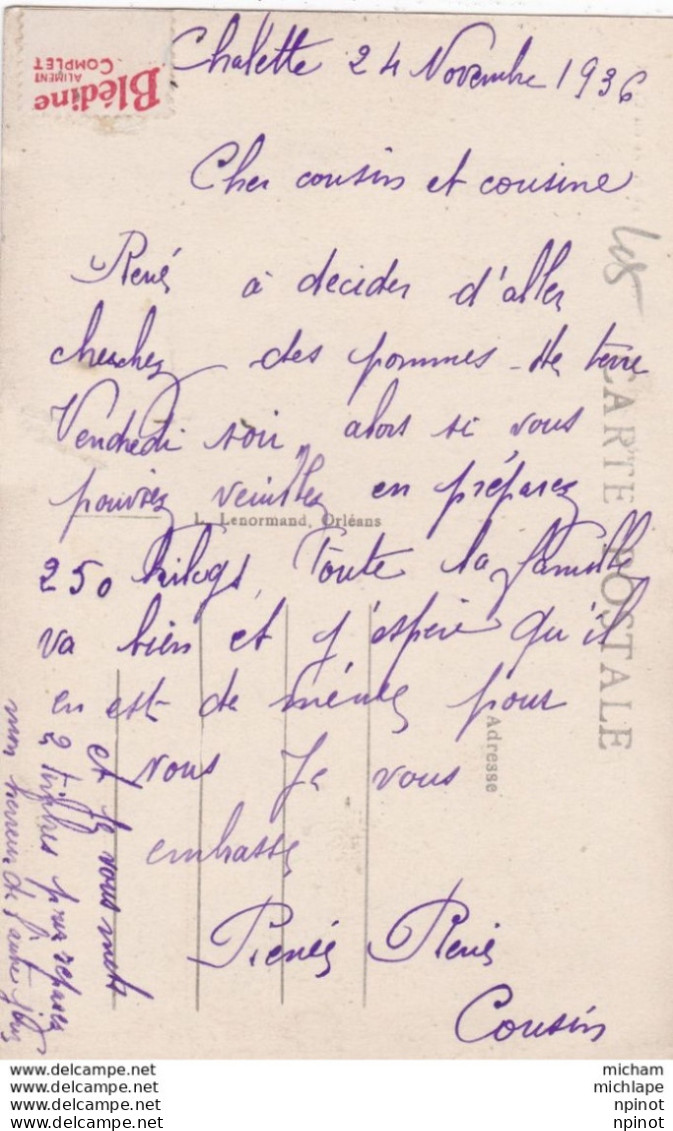 Blédine
ALIMENT
COMPLET
Chalette 24 Novembre 1936
Cher cousin et cousine
René à decider d'aller
cherchez des pommes de terre
Vendredi soir, alors si vous
pouviez veuillez en préparez
L. Lenormand, Orléans
250 kilogs, Toute la famille
va bien et j'espère qu'il
en est de même pour
vous Je vous
embrasse
Renée René
Cousin
et je vous mets
2 timbres pour réparer
mon erreur de l'autre jour
CARTE POSTALE
Adresse
www.delcampe.net
www.delcampe.net
www.delcampe.net
www.delcampe.net
micham
michlape
npinot
npinot